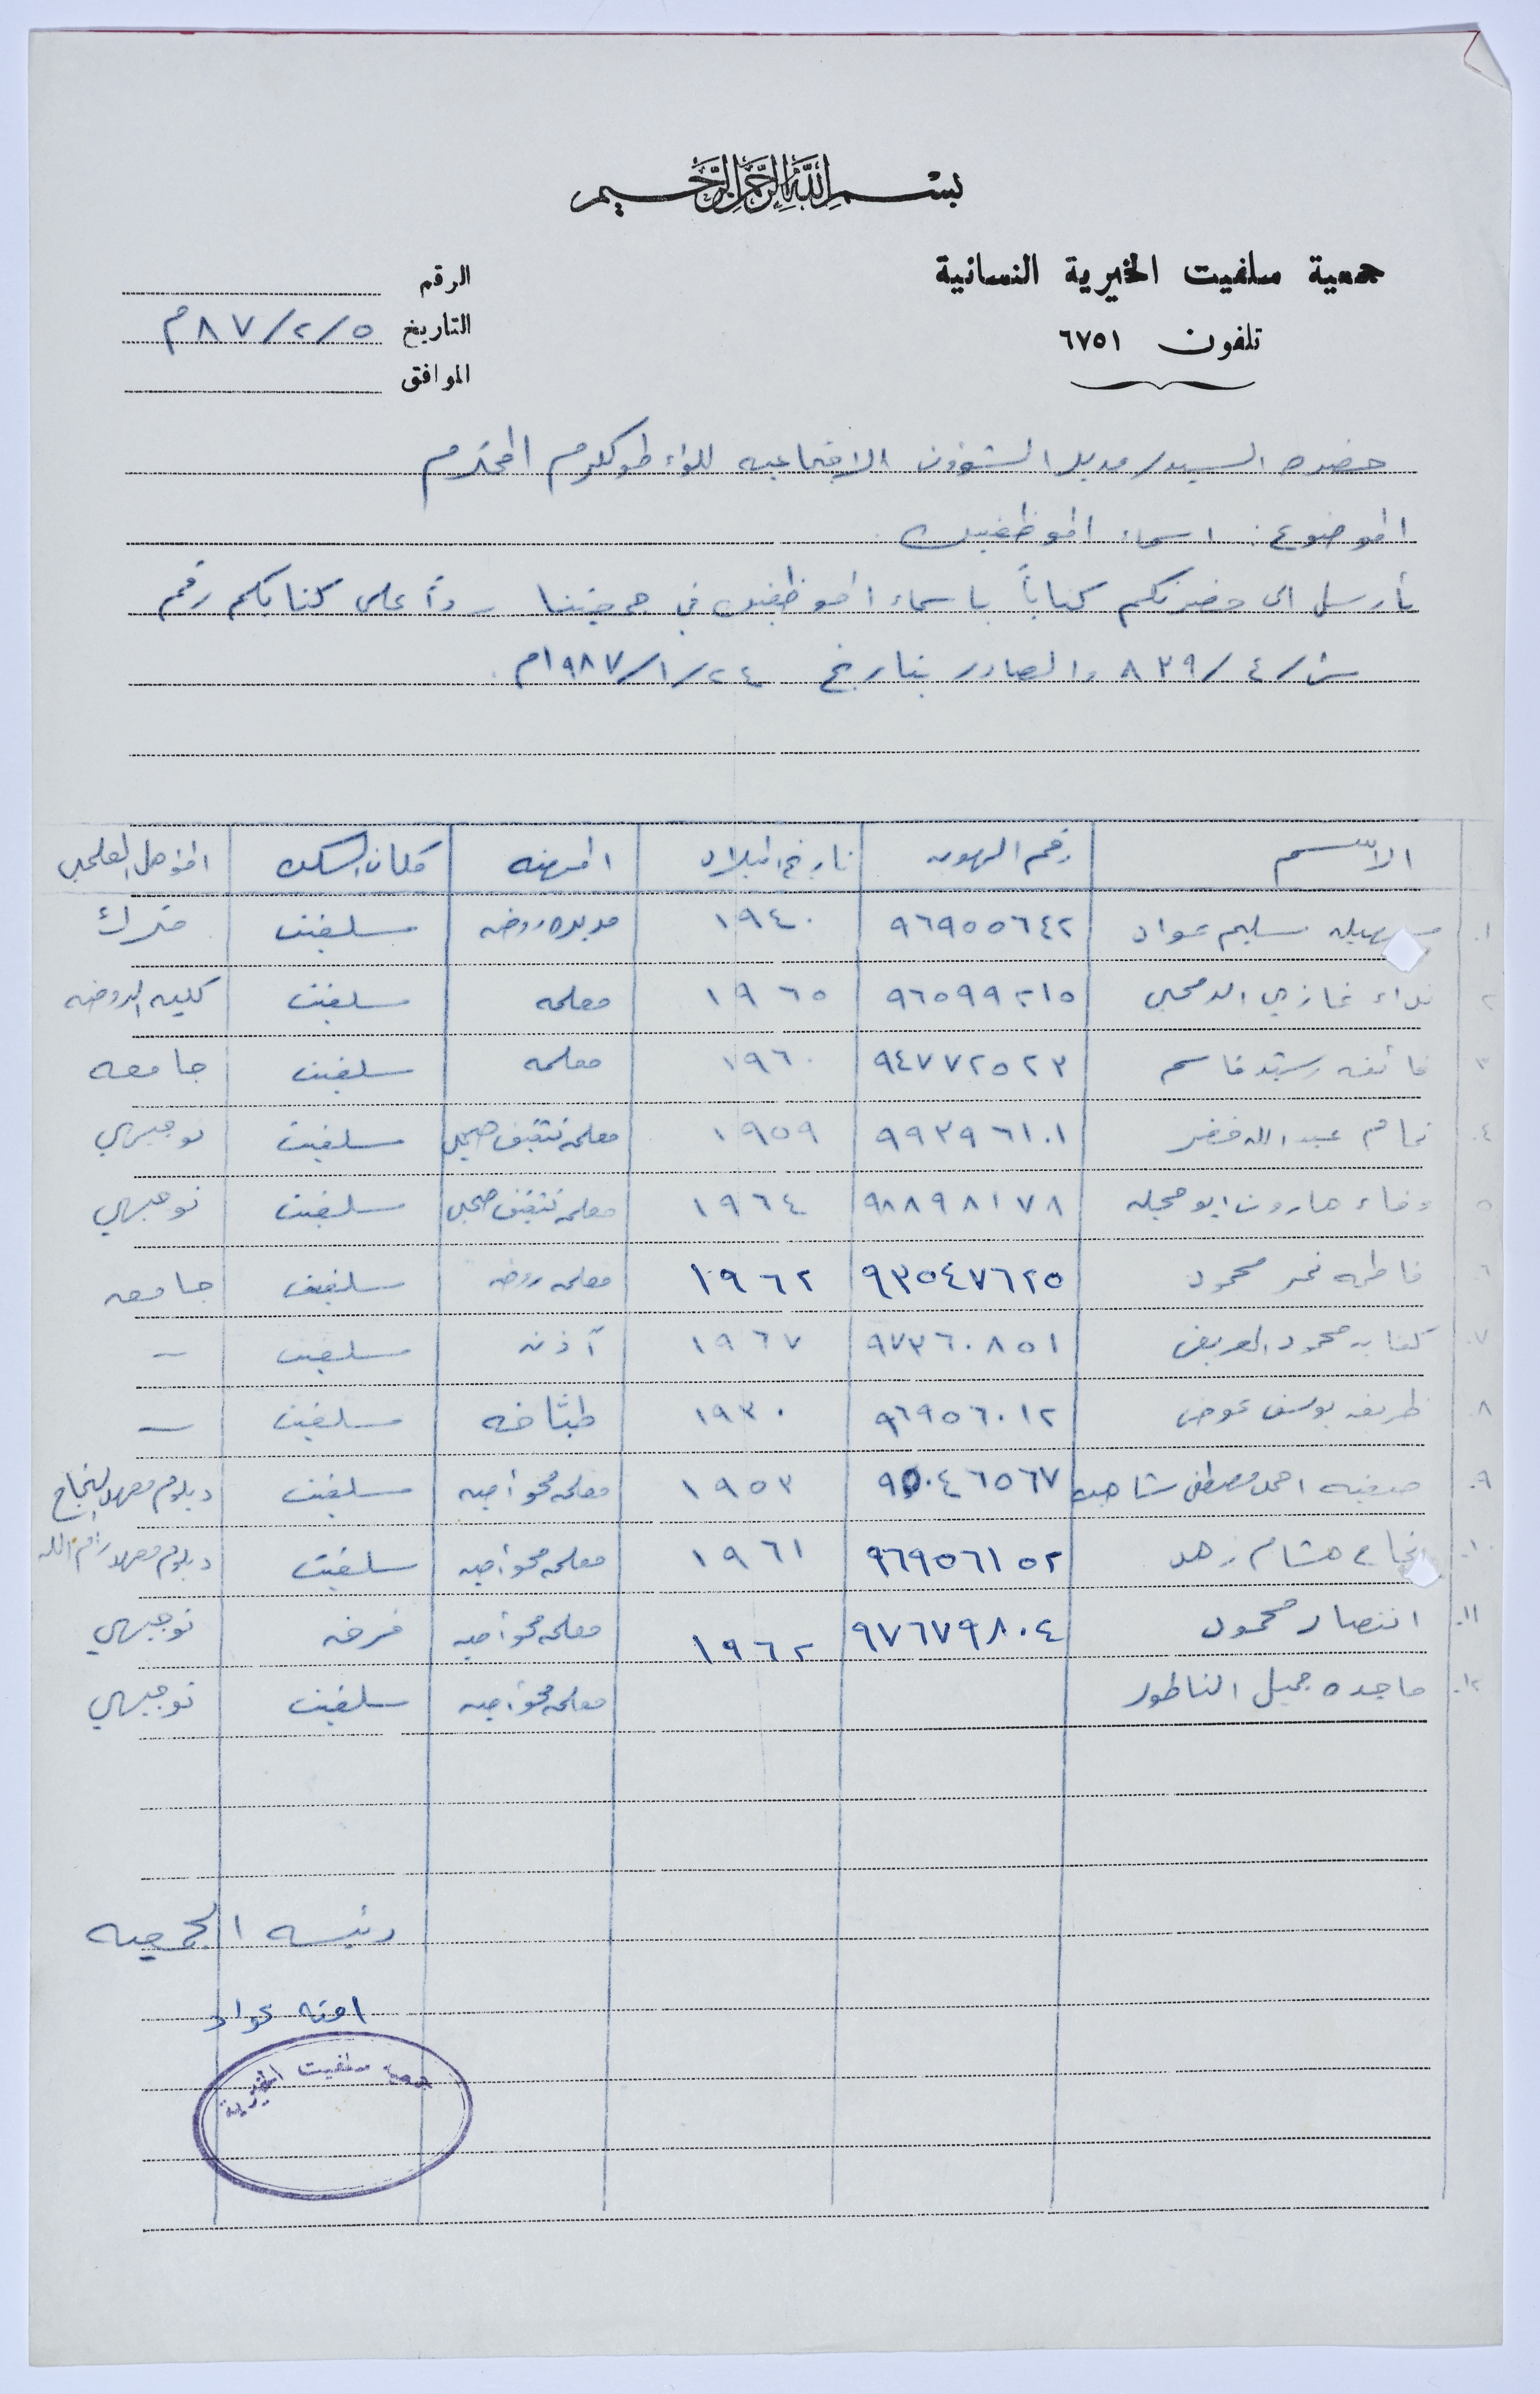 بسم الله الرحمن الرحيم
جمعية سلفيت الخيرية النسائية
تلفون ٦٧٥١
الرقم
التاريخ ٥/٢/٨٧م
الموافق
حضرة السيد مدير الشؤون الاجتماعيه للواء طولكرم المحترم
الموضوع: اسماء الموظفين
نأرسل الى حضرتكم كتاباً باسماء الموظفين في جمعيتنا رداً على كتابكم رقم
ش/٤/٨٣٩ والصادر بتاريخ ٢٤/١/١٩٨٧م.
الاسم رقم الهويه تاريخ الميلاد المهنه مكان السكن المؤهل العلمي
١. سهيله سليم عواد ٩٦٩٥٥٦٤٢ ١٩٤٠ مديره روضه سلفيت مترك
٢. نداء غازي ٩٦٥٩٩٢١٥ ١٩٦٥ معلمه سلفيت كليه الروضه
٣. فائقه رشيد قاسم ٩٤٧٧٢٥٢٣ ١٩٦٠ معلمه سلفيت جامعه
٤. تمام عبد الله خضر ٩٩٣٩٦١٠١ ١٩٥٩ معلمة تثقيف صحي سلفيت توجيهي
٥. وفاء هارون ابو حجله ٩٨٨٩٨١٧٨ ١٩٦٤ معلمة تثقيف صحي سلفيت توجيهي
٦. فاطمه نمر محمود ٩٣٥٤٧٦٢٥ ١٩٦٢ معلمه روضه سلفيت جامعه
٧. كفايه محمود العريض ٩٧٣٦٠٨٥١ ١٩٦٧ آذنه سلفيت –
٨. ظريفه يوسف عوض ٩٦٩٥٦٠١٢ ١٩٣٠ طبّاخه سلفيت –
٩. صفيه احمد مصطفى شاهين ٩٥٠٤٦٥٦٧ ١٩٥٣ معلمه محو أميه سلفيت دبلوم معهد النجاح
١٠. نجاح هشام زهد ٩٦٩٥٦١٥٢ ١٩٦١ معلمه محو أميه سلفيت دبلوم معهد رام الله
١١. انتصار محمود ٩٧٦٧٩٨٠٤ ١٩٦٢ معلمه محو أميه فرخه توجيهي
١٢. ماجده جميل الناطور معلمه محو أميه سلفيت توجيهي
رئيسه الجمعيه
امنه عواد
جمعية سلفيت الخيرية